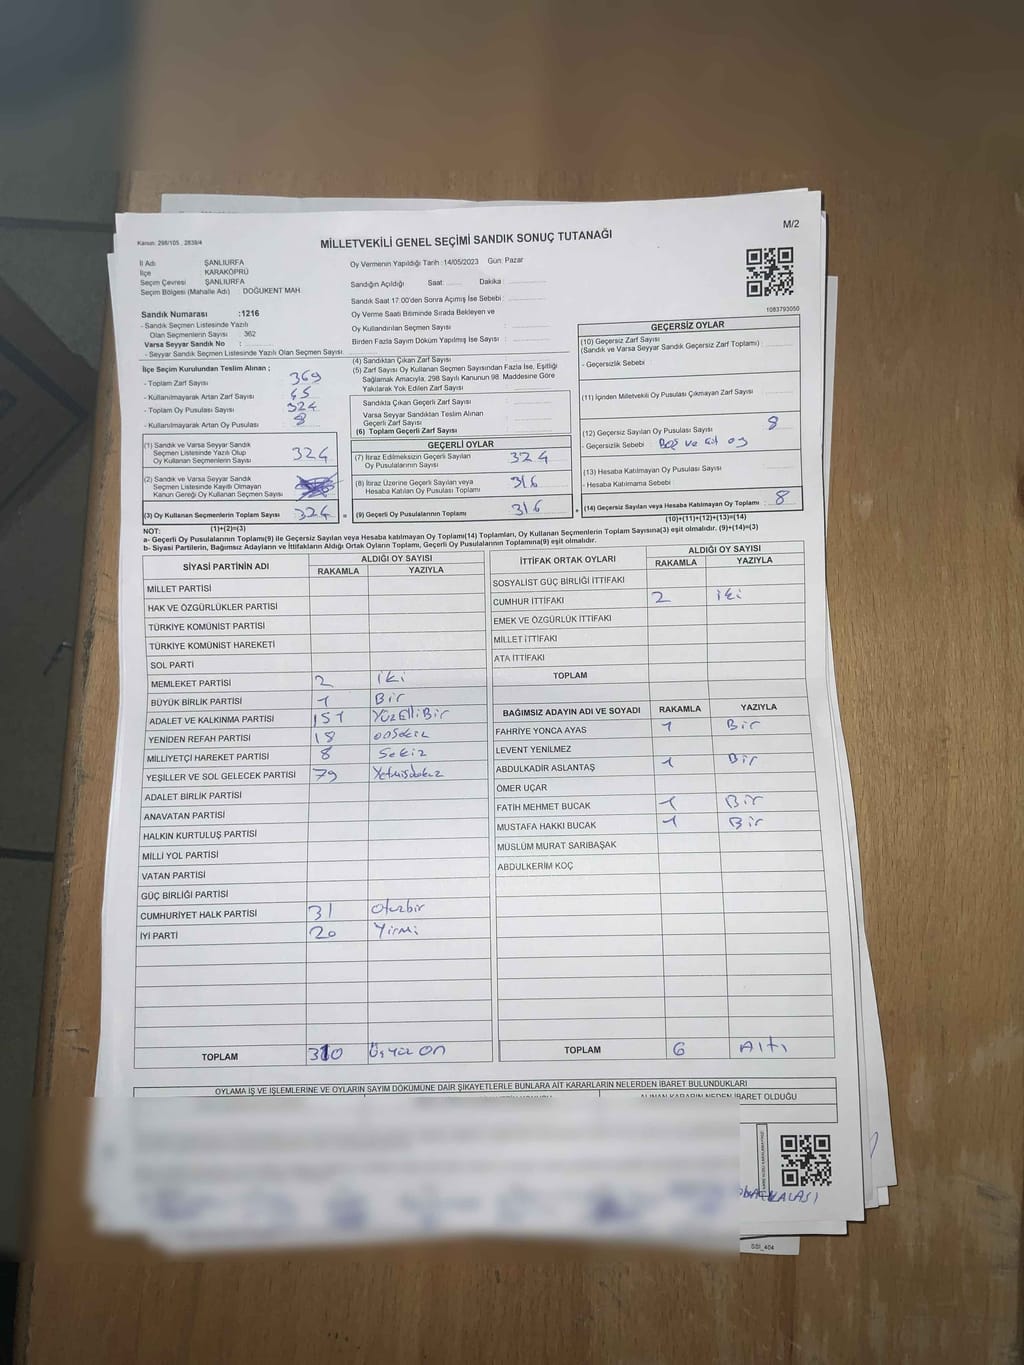 M/2
Kanun: 298/105 , 2839/4
MİLLETVEKİLİ GENEL SEÇİMİ SANDIK SONUÇ TUTANAĞI
İl Adı ŞANLIURFA
İlçe KARAKÖPRÜ
Seçim Çevresi ŞANLIURFA
Seçim Bölgesi (Mahalle Adı) : DOĞUKENT MAH.
Sandık Numarası :1216
- Sandık Seçmen Listesinde Yazılı
Olan Seçmenlerin Sayısı 362
Varsa Seyyar Sandık No :
- Seyyar Sandık Seçmen Listesinde Yazılı Olan Seçmen Sayısı
Oy Vermenin Yapıldığı Tarih :14/05/2023 Gün: Pazar
Sandığın Açıldığı Saat: Dakika :
Sandık Saat 17.00'den Sonra Açımış İse Sebebi :
Oy Verme Saati Bitiminde Sırada Bekleyen ve
Oy Kullandırılan Seçmen Sayısı :
Birden Fazla Sayım Döküm Yapılmış İse Sayısı :
1083793050
İlçe Seçim Kurulundan Teslim Alınan ;
- Toplam Zarf Sayısı 369
- Kullanılmayarak Artan Zarf Sayısı 45
- Toplam Oy Pusulası Sayısı 324
- Kullanılmayarak Artan Oy Pusulası 8
(1) Sandık ve Varsa Seyyar Sandık
Seçmen Listesinde Yazılı Olup
Oy Kullanan Seçmenlerin Sayısı 324
(2) Sandık ve Varsa Seyyar Sandık
Seçmen Listesinde Kayıtlı Olmayan
Kanun Gereği Oy Kullanan Seçmen Sayısı
(3) Oy Kullanan Seçmenlerin Toplam Sayısı 324 =
(1)+(2)=(3)
(4) Sandıktan Çıkan Zarf Sayısı :
(5) Zarf Sayısı Oy Kullanan Seçmen Sayısından Fazla İse, Eşitliği
Sağlamak Amacıyla, 298 Sayılı Kanunun 98. Maddesine Göre
Yakılarak Yok Edilen Zarf Sayısı :
Sandıkta Çıkan Geçerli Zarf Sayısı
Varsa Seyyar Sandıktan Teslim Alınan
Geçerli Zarf Sayısı
(6) Toplam Geçerli Zarf Sayısı
GEÇERLİ OYLAR
(7) İtiraz Edilmeksizin Geçerli Sayılan
Oy Pusulalarının Sayısı 324
(8) İtiraz Üzerine Geçerli Sayılan veya
Hesaba Katılan Oy Pusulası Toplamı 316
(9) Geçerli Oy Pusulalarının Toplamı 316 +
GEÇERSİZ OYLAR
(10) Geçersiz Zarf Sayısı
(Sandık ve Varsa Seyyar Sandık Geçersiz Zarf Toplamı) :
- Geçersizlik Sebebi :
(11) İçinden Milletvekili Oy Pusulası Çıkmayan Zarf Sayısı
(12) Geçersiz Sayılan Oy Pusulası Sayısı 8
- Geçersizlik Sebebi : Boş ve oy
(13) Hesaba Katılmayan Oy Pusulası Sayısı
- Hesaba Katılmama Sebebi :
(14) Geçersiz Sayılan veya Hesaba Katılmayan Oy Toplamı : 8
(10)+(11)+(12)+(13)=(14)
NOT:
a- Geçerli Oy Pusulalarının Toplamı(9) ile Geçersiz Sayılan veya Hesaba katılmayan Oy Toplamı(14) Toplamları, Oy Kullanan Seçmenlerin Toplam Sayısına(3) eşit olmalıdır. (9)+(14)=(3)
b- Siyasi Partilerin, Bağımsız Adayların ve İttifakların Aldığı Ortak Oyların Toplamı, Geçerli Oy Pusulalarının Toplamına(9) eşit olmalıdır.
SİYASİ PARTİNİN ADI ALDIĞI OY SAYISI
RAKAMLA YAZIYLA
MİLLET PARTİSİ
HAK VE ÖZGÜRLÜKLER PARTİSİ
TÜRKİYE KOMÜNİST PARTİSİ
TÜRKİYE KOMÜNİST HAREKETİ
SOL PARTİ
MEMLEKET PARTİSİ 2 iki
BÜYÜK BİRLİK PARTİSİ 1 Bir
ADALET VE KALKINMA PARTİSİ 151 YüzElliBir
YENİDEN REFAH PARTİSİ 18 onsekiz
MİLLİYETÇİ HAREKET PARTİSİ 8 Sekiz
YEŞİLLER VE SOL GELECEK PARTİSİ 79
ADALET BİRLİK PARTİSİ
ANAVATAN PARTİSİ
HALKIN KURTULUŞ PARTİSİ
MİLLİ YOL PARTİSİ
VATAN PARTİSİ
GÜÇ BİRLİĞİ PARTİSİ
CUMHURİYET HALK PARTİSİ 31 otuzbir
İYİ PARTİ 20 Yirmi
TOPLAM 310 Üçyüz on
İTTİFAK ORTAK OYLARI ALDIĞI OY SAYISI
RAKAMLA YAZIYLA
SOSYALİST GÜÇ BİRLİĞİ İTTİFAKI
CUMHUR İTTİFAKI 2 iki
EMEK VE ÖZGÜRLÜK İTTİFAKI
MİLLET İTTİFAKI
ATA İTTİFAKI
TOPLAM
BAĞIMSIZ ADAYIN ADI VE SOYADI RAKAMLA YAZIYLA
FAHRİYE YONCA AYAS 1 Bir
LEVENT YENİLMEZ
ABDULKADİR ASLANTAŞ 1 Bir
ÖMER UÇAR
FATİH MEHMET BUCAK 1 Bir
MUSTAFA HAKKI BUCAK 1 Bir
MÜSLÜM MURAT SARIBAŞAK
ABDULKERİM KOÇ
TOPLAM 6 Altı
OYLAMA İŞ VE İŞLEMLERİNE VE OYLARIN SAYIM DÖKÜMÜNE DAİR ŞİKAYETLERLE BUNLARA AİT KARARLARIN NELERDEN İBARET BULUNDUKLARI
ALINAN KARARIN NEDEN İBARET OLDUĞU
SSI_404